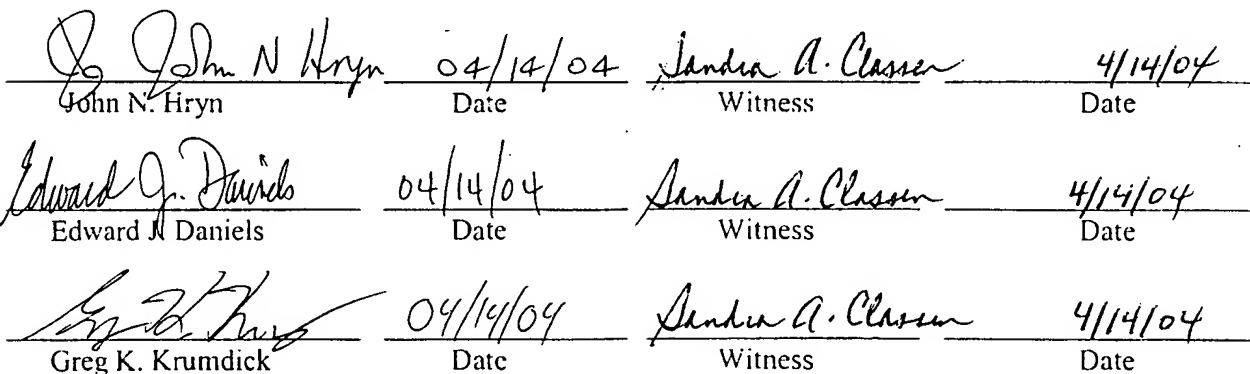 John N Hryn 04/14/04 Sandra A. Classen 4/14/04
John N. Hryn Date Witness Date
Edward J. Daniels 04/14/04 Sandra A. Classen 4/14/04
Edward J. Daniels Date Witness Date
04/14/04 Sandra A. Classen 4/14/04
Greg K. Krumdick Date Witness Date